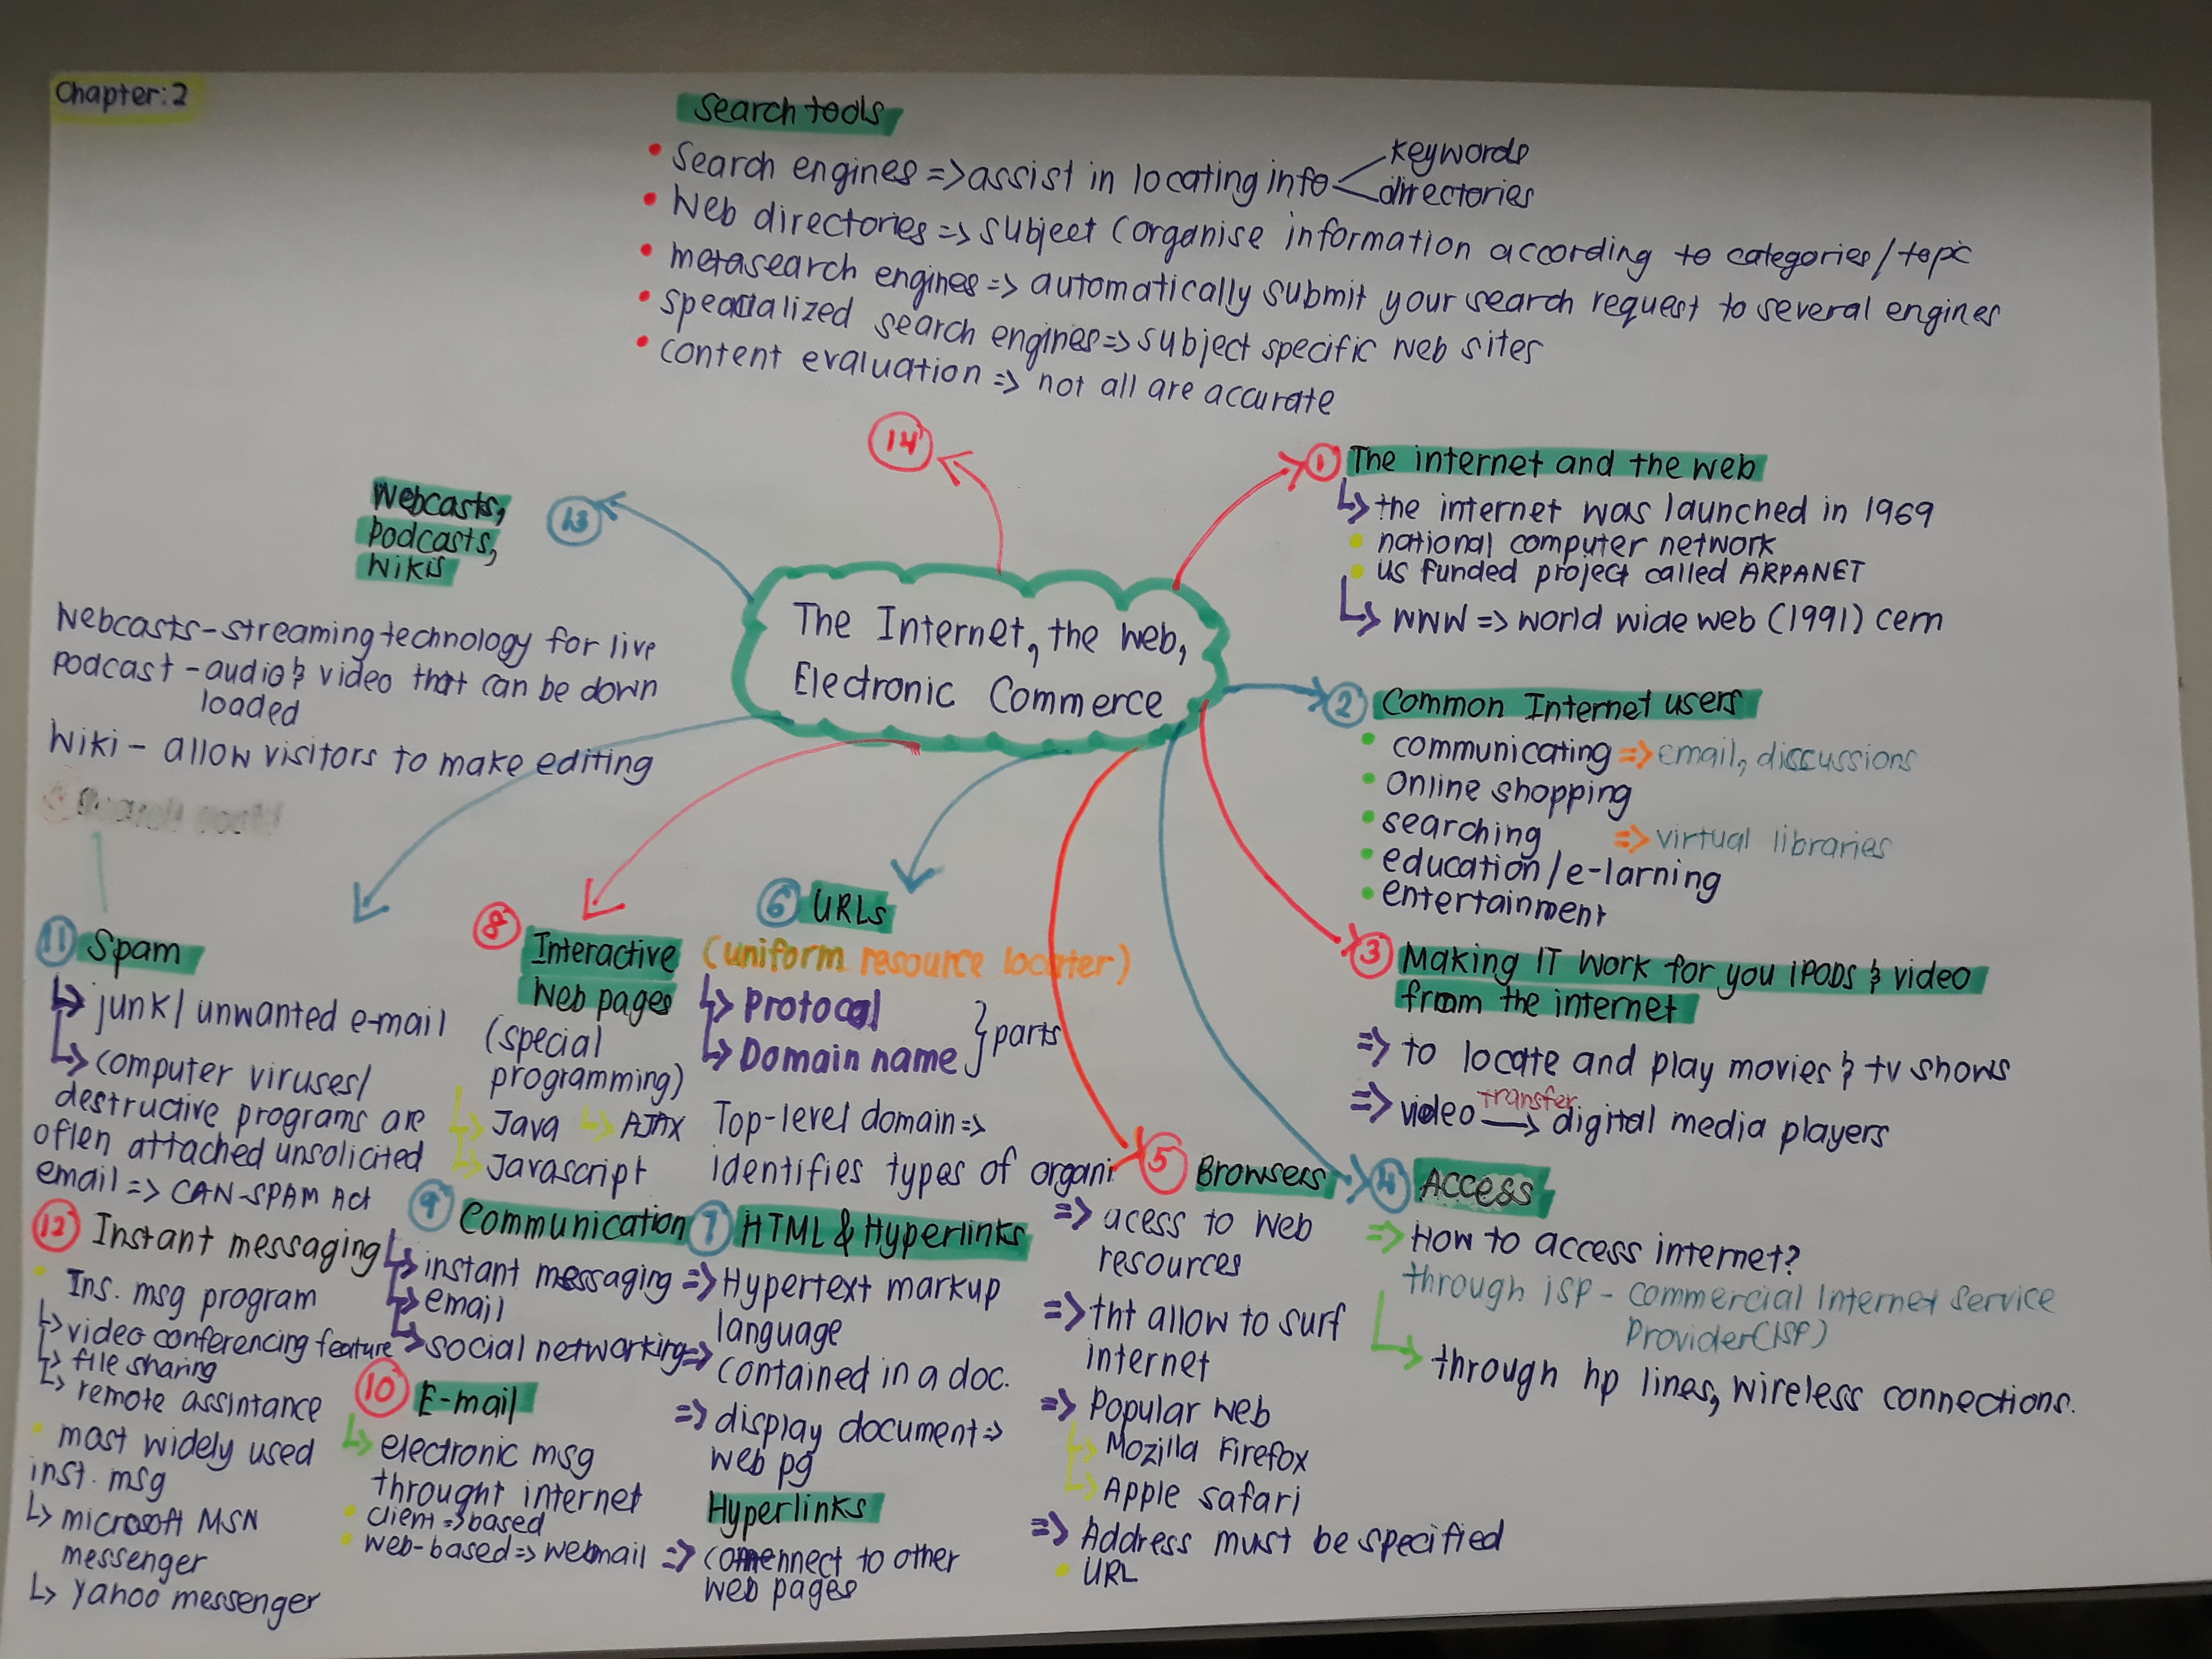 Chapter:2
Search tools
• Search engines => assist in locating info < keywords
directories
• Web directories => subject (organise information according to categories/topic
• metasearch engines => automatically submit your search request to several engines
• specialized search engines => subject specific web sites
• content evaluation => not all are accurate
14
The Internet, the web,
Electronic Commerce
1 The internet and the web
↳ the internet was launched in 1969
• national computer network
• US funded project called ARPANET
↳ WWW => world wide web (1991) cern
2 Common Internet users
• communicating => email, discussions
• Online shopping
• searching => virtual libraries
• education/e-larning
• entertainment
3 Making IT work for you IPODS & video
from the internet
=> to locate and play movies & tv shows
=> video transfer → digital media players
4 Access
=> How to access internet?
through ISP - commercial Internet Service
Provider(ISP)
↳ through hp lines, wireless connections.
5 Browsers
=> acess to web
resources
=> tht allow to surf
internet
=> Popular web
↳ Mozilla Firefox
↳ Apple safari
=> Address must be specified
• URL
6 URLs
(uniform resource locater)
↳ Protocol
↳ Domain name } parts
Top-level domain =>
identifies types of organi
7 HTML & Hyperlinks
=> Hypertext markup
language
=> contained in a doc.
=> display document =>
web pg
Hyperlinks
=> connect to other
web pages
8 Interactive
Web pages
(special
programming)
↳ Java ↳ AJAX
↳ Javascript
9 Communication
↳ instant messaging
↳ email
↳ social networking
10 E-mail
↳ electronic msg
throught internet
• client => based
• web-based => webmail
11 Spam
↳ junk/unwanted e-mail
↳ computer viruses/
destructive programs are
often attached unsolicited
email => CAN-SPAM Act
12 Instant messaging
• Ins. msg program
↳ video conferencing feature
↳ file sharing
↳ remote assintance
• most widely used
inst. msg
↳ microsoft MSN
messenger
↳ yahoo messenger
13 Webcasts,
podcasts,
wikis
Webcasts - streaming technology for live
podcast - audio & video that can be down
loaded
Wiki - allow visitors to make editing